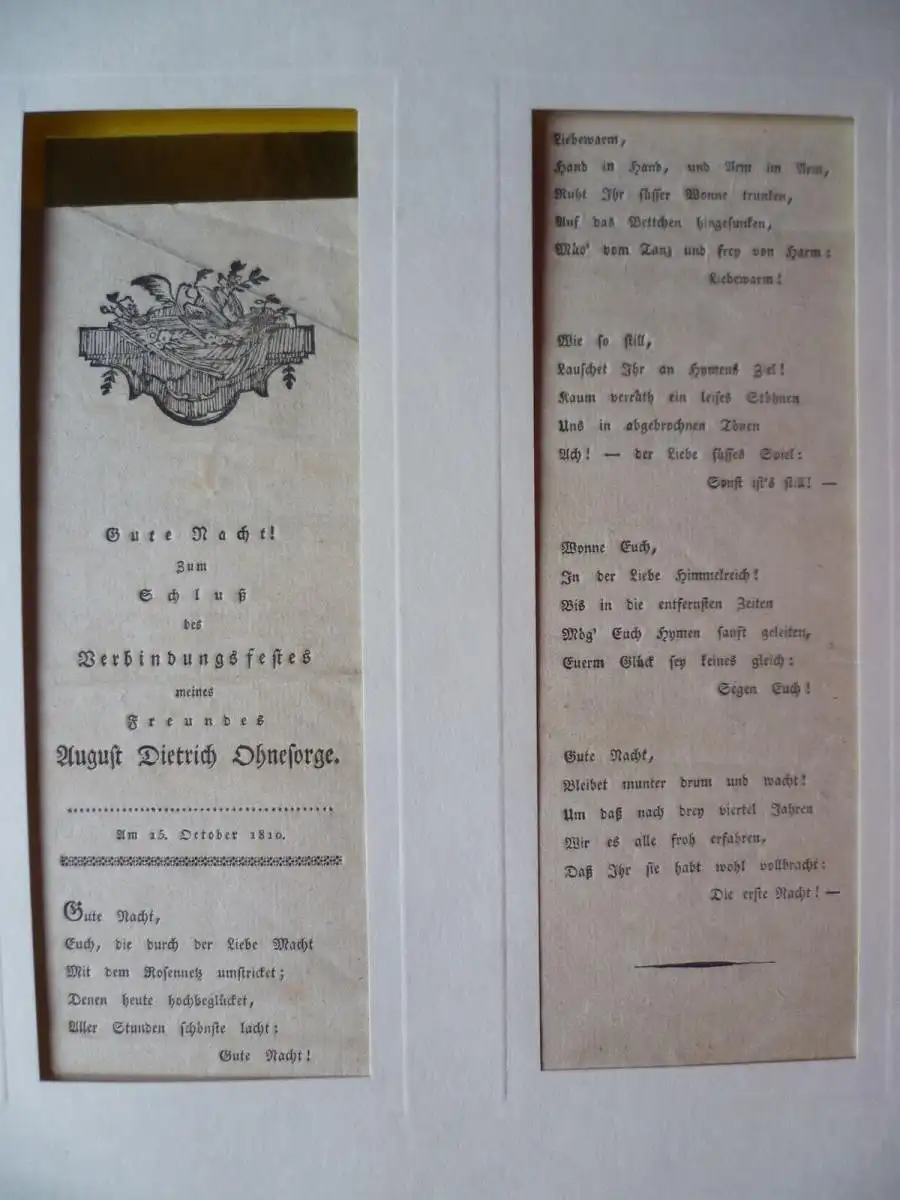 Gute Nacht!
Zum
Schluß
des
Verbindungsfestes
meines
Freundes
August Dietrich Ohnesorge.
Am 15. October 1810.
Gute Nacht,
Euch, die durch der Liebe Macht
Mit dem Rosennetz umstricket;
Denen heute hochbeglücket,
Aller Stunden schönste lacht:
Gute Nacht!
Liebewarm,
Hand in Hand, und Arm im Arm,
Ruht Ihr süsser Wonne trunken,
Auf das Bettchen hingesunken,
Müd' vom Tanz und frey von Harm:
Liebewarm!
Wie so still,
Lauschet Ihr an Hymens Ziel!
Kaum verräth ein leises Stöhnen
Uns in abgebrochnen Tönen
Ach! — der Liebe süsses Spiel:
Sonst ist's still! —
Wonne Euch,
In der Liebe Himmelreich!
Bis in die entfernsten Zeiten
Mög' Euch Hymen sanft geleiten,
Euerm Glück sey keines gleich:
Segen Euch!
Gute Nacht,
Bleibet munter drum und wacht!
Um daß nach drey viertel Jahren
Wir es alle froh erfahren,
Daß Ihr sie habt wohl vollbracht:
Die erste Nacht! —